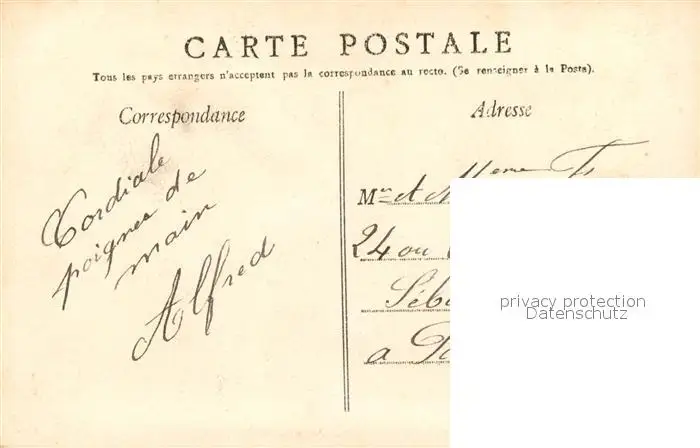 CARTE POSTALE
Tous les pays etrangers n'acceptent pas la correspondance au recto. (Se renseigner à la Poste).
Correspondance
Adresse
Cordiale
poignée de
main
Alfred
M et
24 ou
Séb
a
privacy protection
Datenschutz